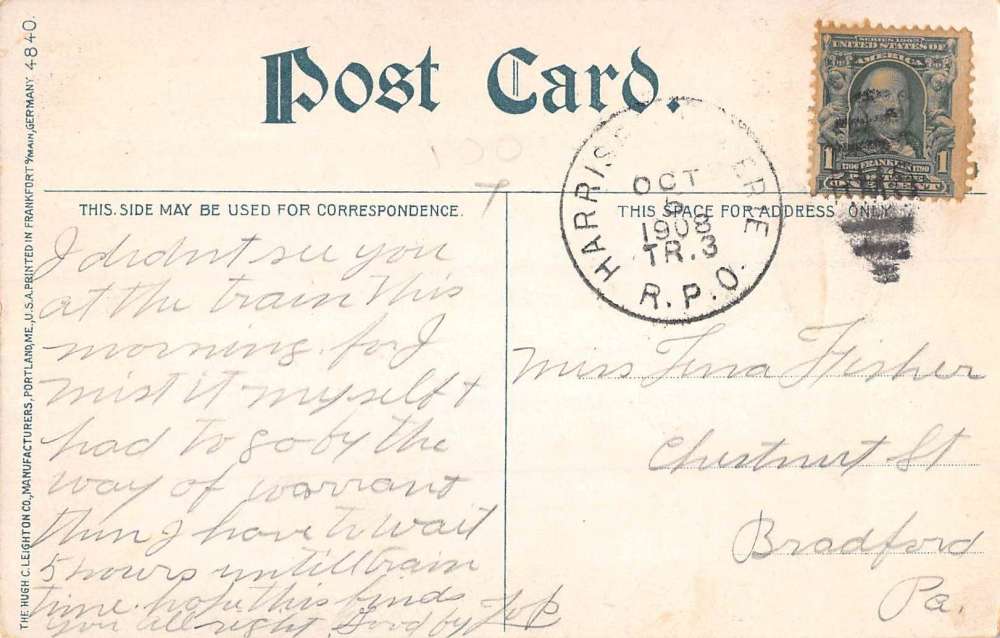 Post Card.
SERIES 1902
UNITED STATES OF
AMERICA
1 1706 FRANKLIN 1790 1
ONE CENT
HARRIS ERIE
OCT
5
1908
TR.3
R.P.O.
THIS SIDE MAY BE USED FOR CORRESPONDENCE.
THIS SPACE FOR ADDRESS ONLY
I didnt see you
at the train this
morning. for I
mist it myself &
had to go by the
way of warrant
then I have to wait
5 hours untill train
time. hope this finds
you all right. Good by
Miss Tina Fisher
Chestnut St
Bradford
Pa.
THE HUGH C. LEIGHTON CO., MANUFACTURERS, PORTLAND, ME., U.S.A. PRINTED IN FRANKFORT a/MAIN, GERMANY 4840.